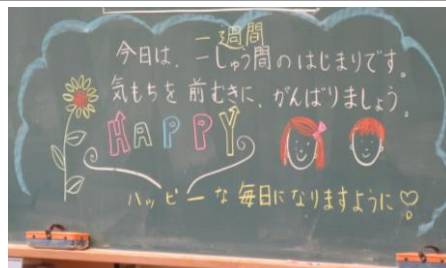 一週間
今日は、一しゅう間のはじまりです。
気もちを前むきに、がんばりましょう。
HAPPY
ハッピーな毎日になりますように♡